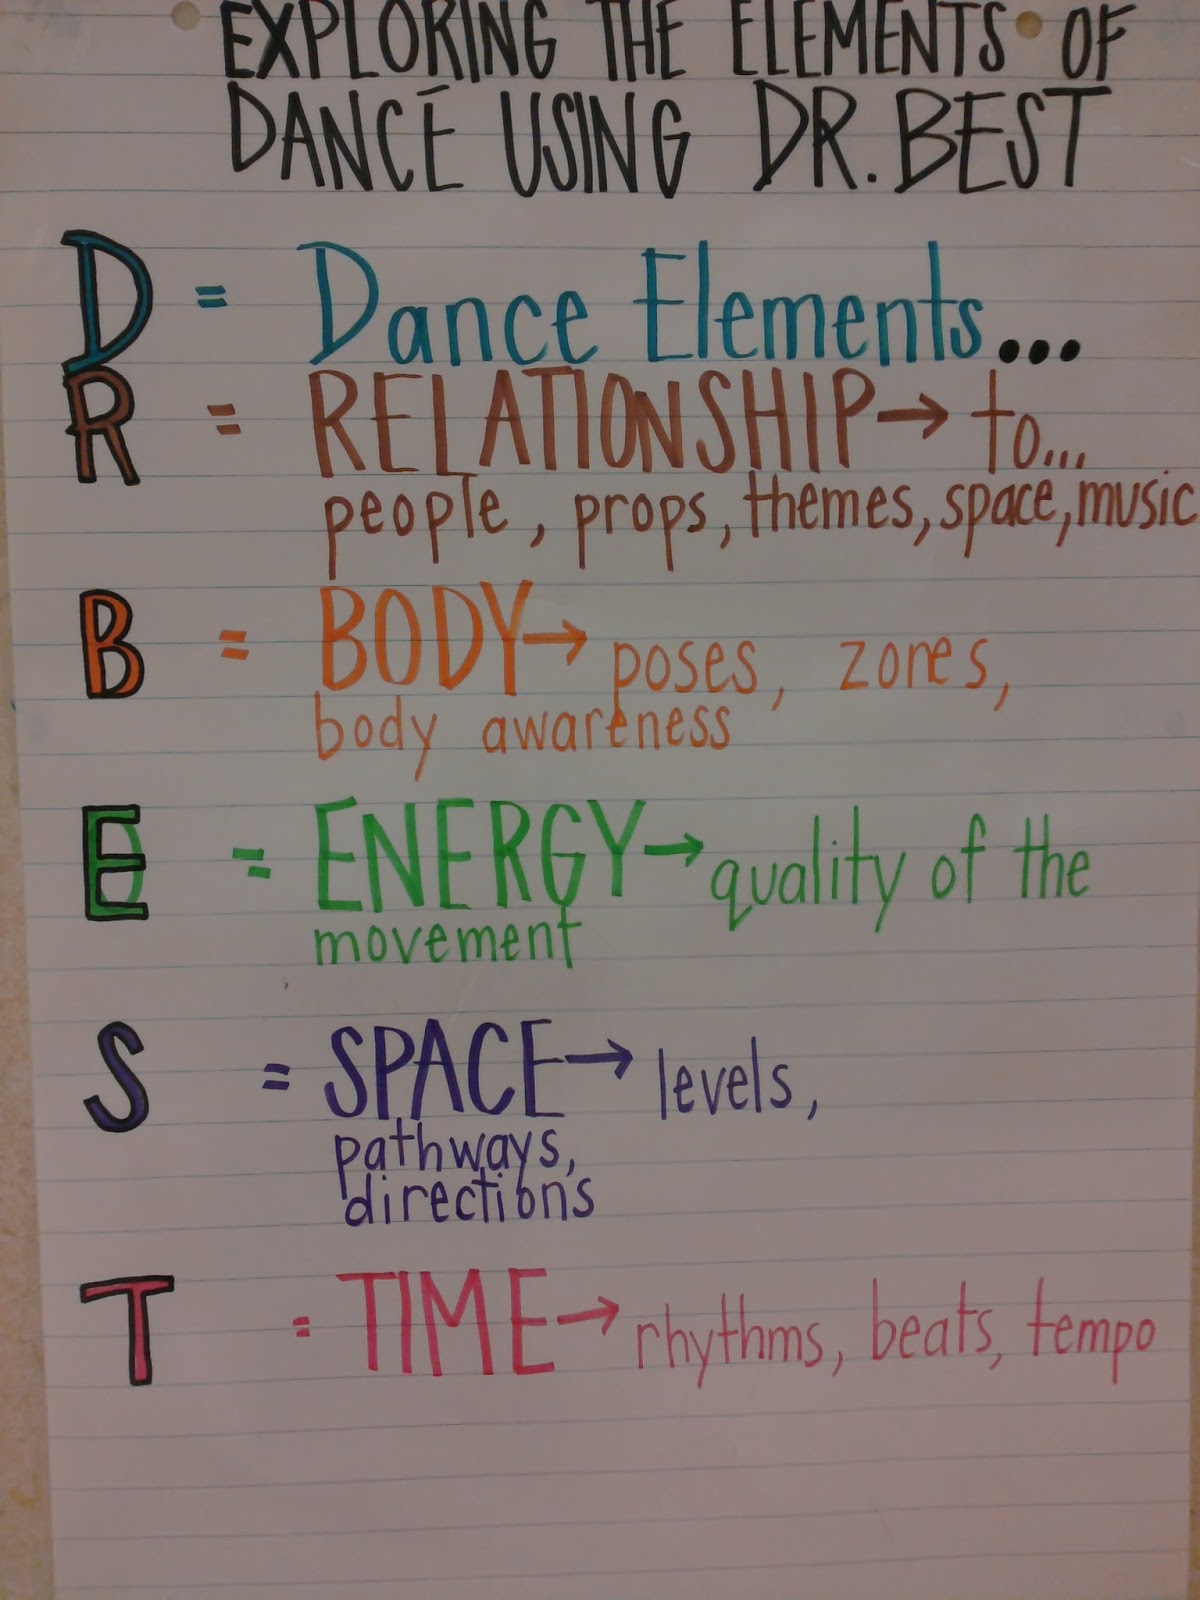 EXPLORING THE ELEMENTS OF
DANCE USING DR. BEST
D = Dance Elements...
R = RELATIONSHIP → to...
people, props, themes, space, music
B = BODY → poses, zones,
body awareness
E = ENERGY → quality of the
movement
S = SPACE → levels,
pathways,
directions
T = TIME → rhythms, beats, tempo